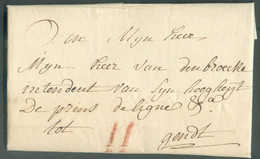 Den Mijn heer
Mijn heer van den broecke
intendent van Syn hoogheyt
De prins de ligne &a
tot
gendt